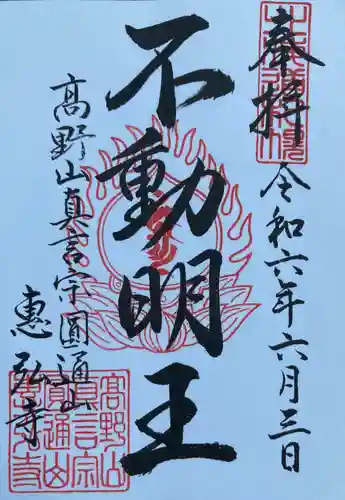 奉拝
令和六年六月三日
不動明王
高野山真言宗圓通山
惠弘寺
高野山
真言宗
圓通山